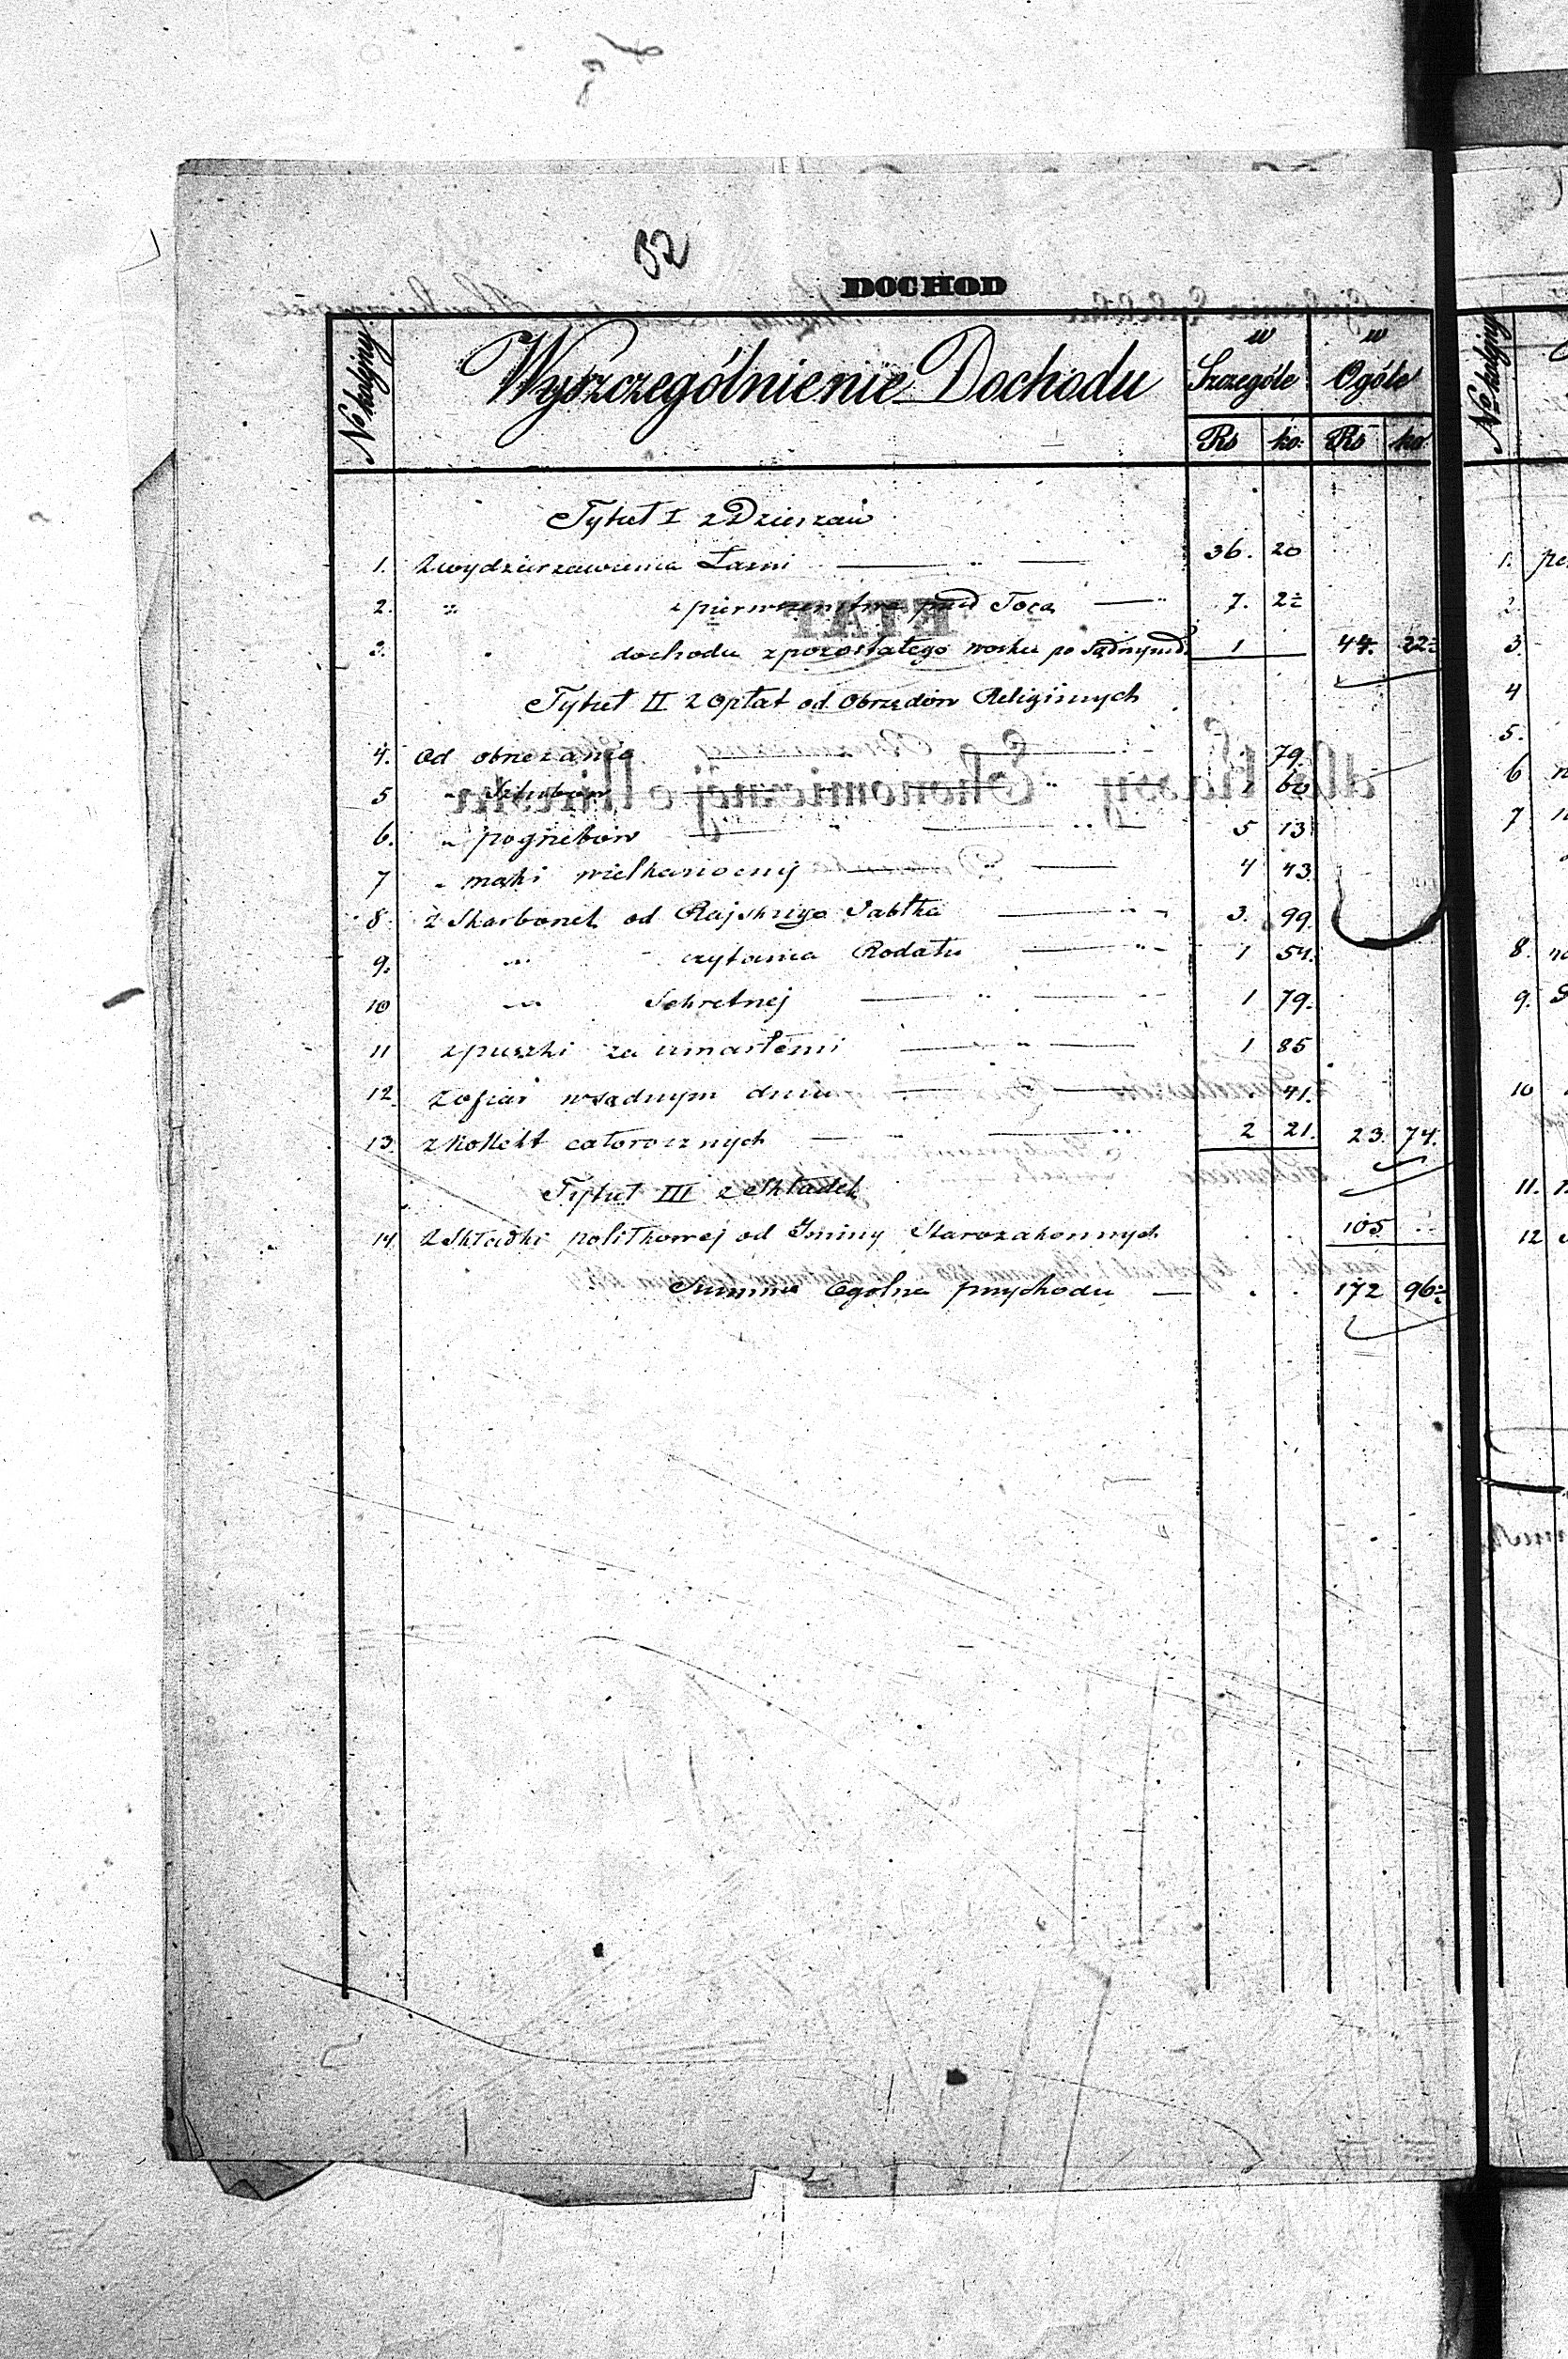 32
DOCHOD
№ kolejny Wyszczególnienie Dochodu w Szczególe w Ogóle
Rs ko: Rs ko
Tytuł I z Dzierzaw
1. Z wydzierzawienia Łazni 36. 20
2. " z pierwszenstwa przed Torą 7. 2½
3. " dochodu z pozostałego wosku po Sądnym d. 1 44. 22½
Tytuł II z Opłat od Obrzędów Religijnych
4. Od obrzezania 79.
5 " Szlubow 60
6. " pogrzebow 5 13
7 " maki wielkanocnej 4 43.
8 z Skarbonek od Rajskiego Jabłka 3. 99.
9. " czytania Rodału 1 54.
10 " 1 79.
11 z puszki za umarłemi 1 85
12. z ofiar w sądnym dniu 41.
13. z Kollekt całorocznych 2 21. 23. 74.
Tytuł III z Składek
14. z Składki politkowej od Gminy Starozakonnych 105
Summa Ogolna przychodu 172 96½
№ kolejny
1.
2.
3.
4
5.
6
7
8.
9.
10
11.
12